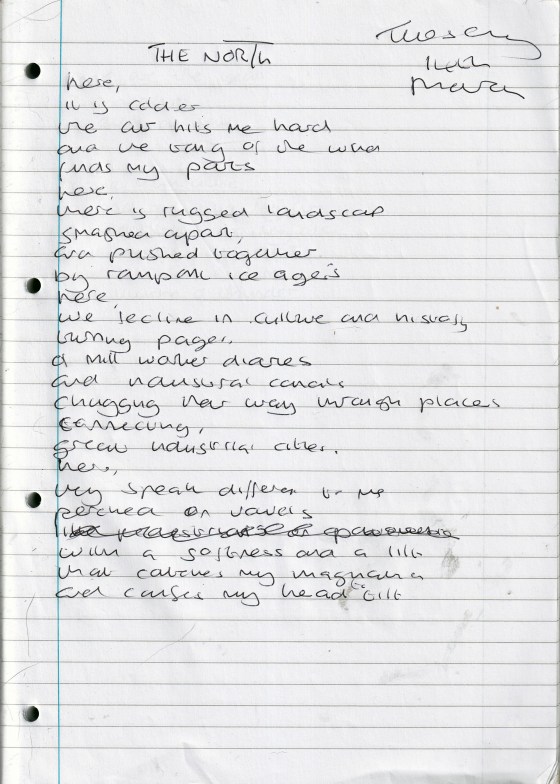 Tuesday
11th
March
THE NORTH
here,
it is colder
the air hits me hard
and the tang of the wind
finds my parts
here,
there is rugged landscap
smashed apart,
and pushed together
by rampant ice ages
here,
we recline in culture and history
turning pages.
of mill worker diaries
and industrial canals
chugging their way through places
connecting,
great industrial cities.
here,
they speak different to me
perched on vowels
with a softness and a lilt
that catches my
and causes my head to tilt